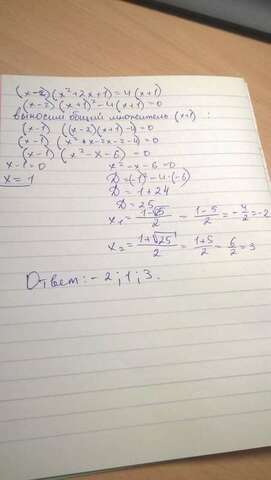 (x-2)(x²+2x+1)=4(x+1)
(x-2)(x+1)²-4(x+1)=0
выносим общий множитель (x+1) :
(x-1) ((x-2)(x+1)-4)=0
(x-1) (x²+x-2x-2-4)=0
(x-1) (x²-x-6)=0
x-1=0 x²-x-6=0
x=1 D=(-1)²-4·(-6)
D=1+24
D=25
x₁=(1-√25)/2=(1-5)/2=-4/2=-2
x₂=(1+√25)/2=(1+5)/2=6/2=3
Ответ: -2; 1; 3.